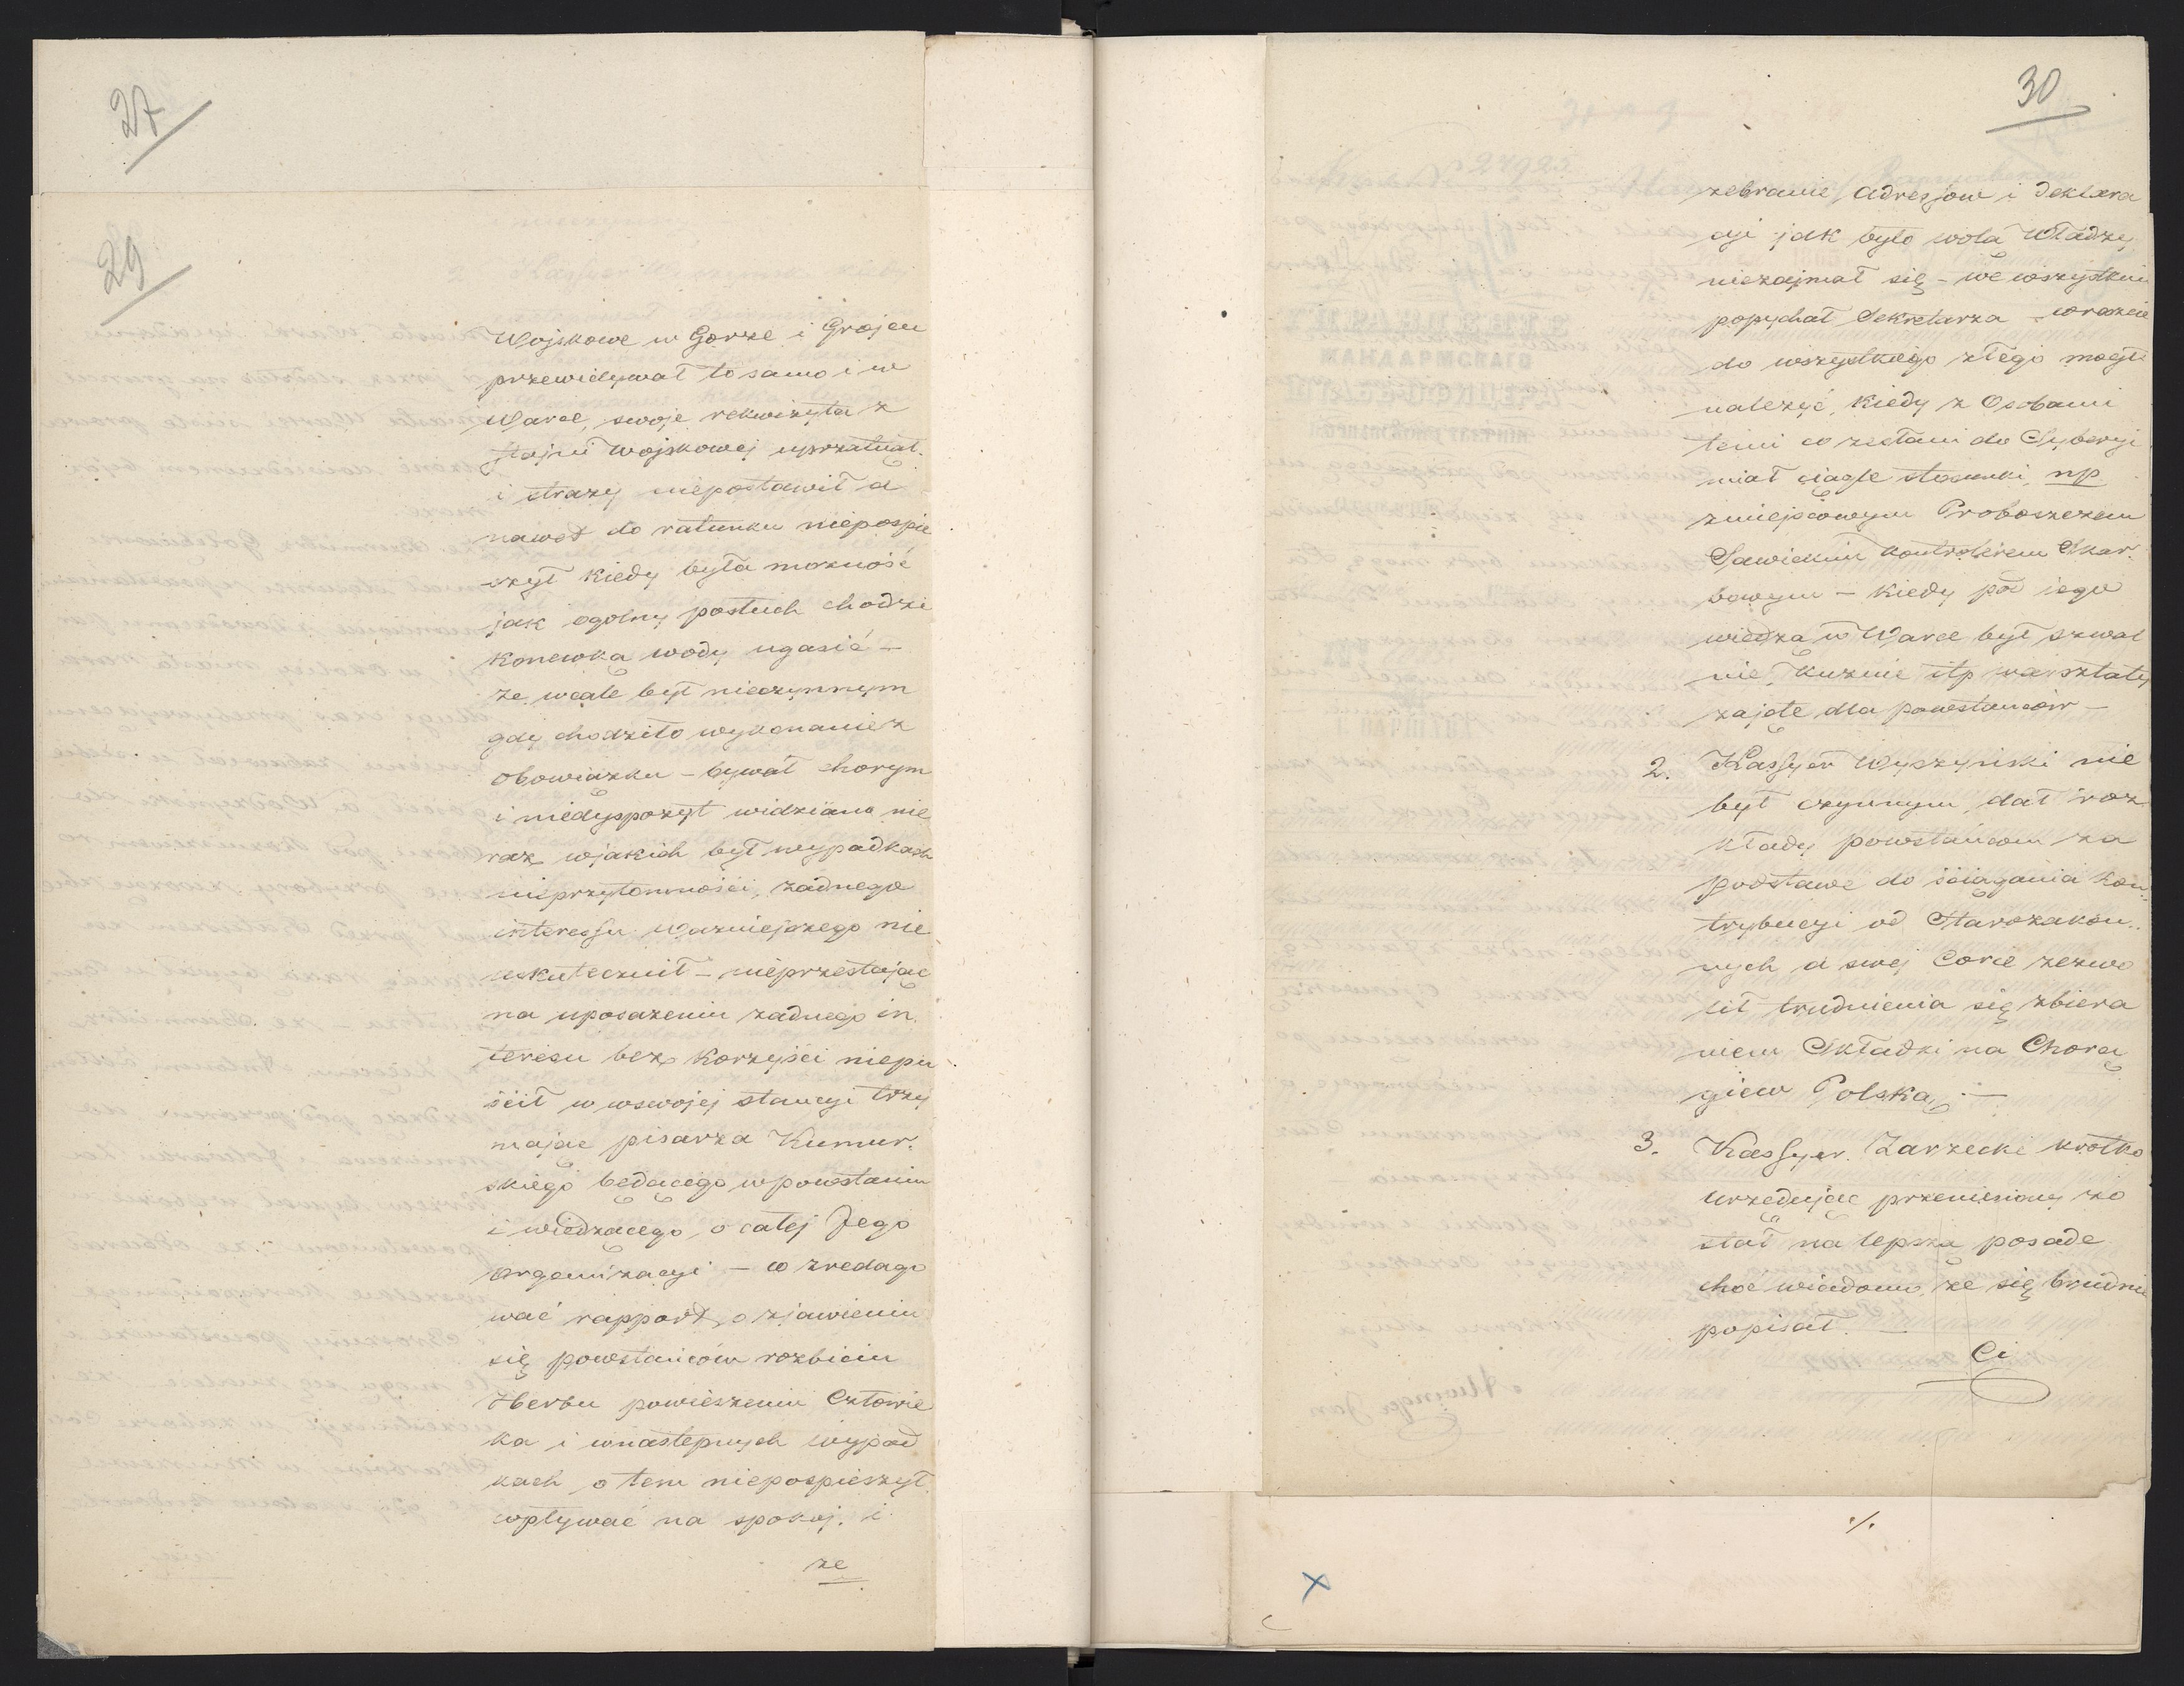 27
29
Wojskowe w Gorze i Grojcu
przewidywał to samo i w
Warce, swoje rekwizyta z
stajni Wojskowej uprzątnął
i straży niepostawił a
nawet do ratunku niepospie
szył kiedy była możność
jak ogolny postuch chodzi
konewką wody ugasić –
że wcale był nieczynnym
gdy chodziło wykonanie z
obowiązku – bywał chorym
i niedysponzył widziano nie
raz w jakich był wypadkach
nieprzytomności, żadnego
interessu ważniejszego nie
uskutecznił – nieprzestając
na uposażeniu żadnego in
teresu bez korzyści niepu
ścił w wswojej stancyi trzy
mając pisarza Kumur.
skiego będącego w powstaniu
i wiedzącego o całej Jego
organizacyi – co zredago
wać rapport o zjawieniu
się powstańców rozbiciu
Herbu powieszeniu Człowie
ka i w następnych wypad
kach o tem niepospieszył
wpływać na spokoj. i
że
30
zebranie adressow i deklara
cyi jak było wola Władzy
niezajmał się – we wszystkim
popychał Sekretarza – wrazcie
do wszystkiego złego mogł
należyć, kiedy z Osobami
temi co zesłani do Syberyi
miał ciągłe stosunki, np
z miejscowym Proboszczem
Sawickim Kontrolerem Skar.
bowym – kiedy pod jego
wiedzą w Warce był szwal
nie, kuznie itp warsztaty
zajęte dla powstańców –
2. Kassyer Wyszyński nie
był czynnym, dał roz
kłady powstańcom za
podstawę do ściągania kon
trybucyi od Starozakon..
nych a swej Corce zezwo
lił trudnienia się zbiera
niem Składki na Chorą
giew Polską –
3. Kassyer Zarzecki krotko
urzędując przeniesiony zo
stał na lepszą posade
choć wiadomo, że się brudnie
popisał. –
Ci
./.
x